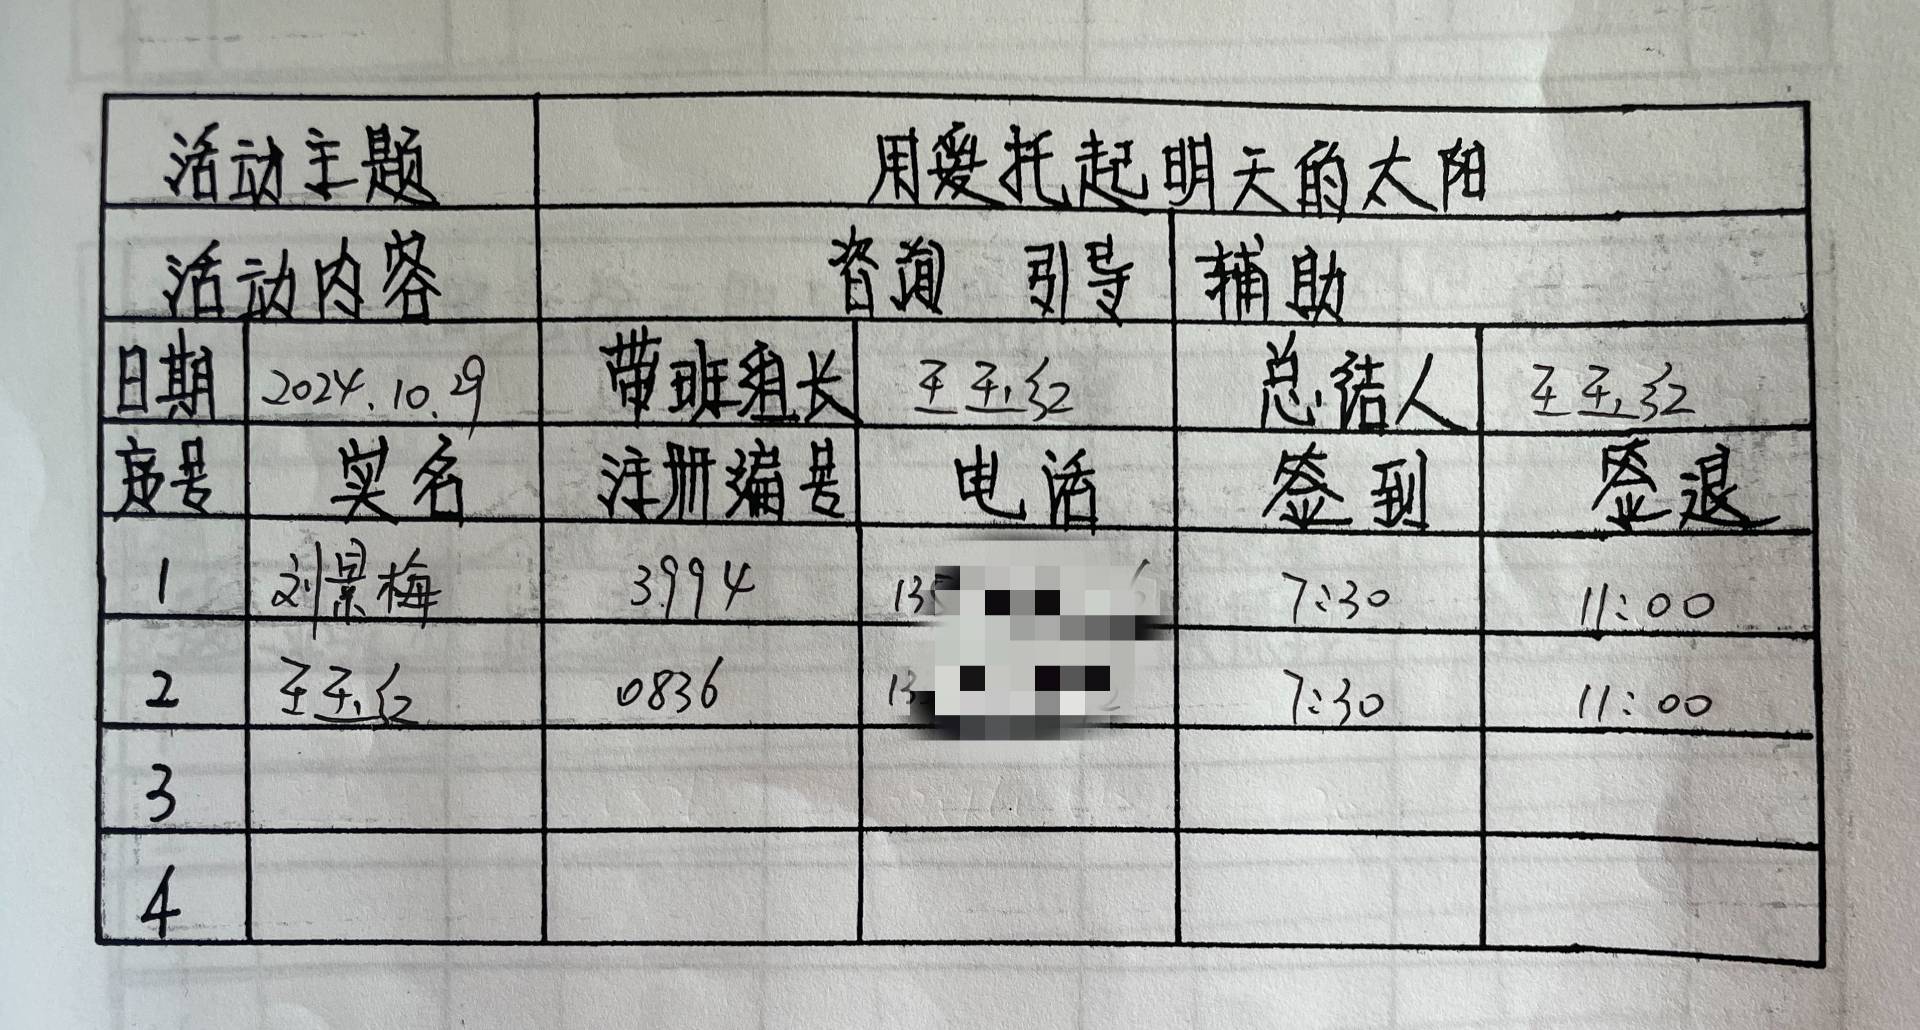 活动主题 用爱托起明天的太阳
活动内容 咨询 引导 辅助
日期 2024.10.29 带班组长 王玉红 总结人 王玉红
序号 实名 注册编号 电话 签到 签退
1 刘景梅 3994 135 6 7:30 11:00
2 王玉红 0836 13 2 7:30 11:00
3
4